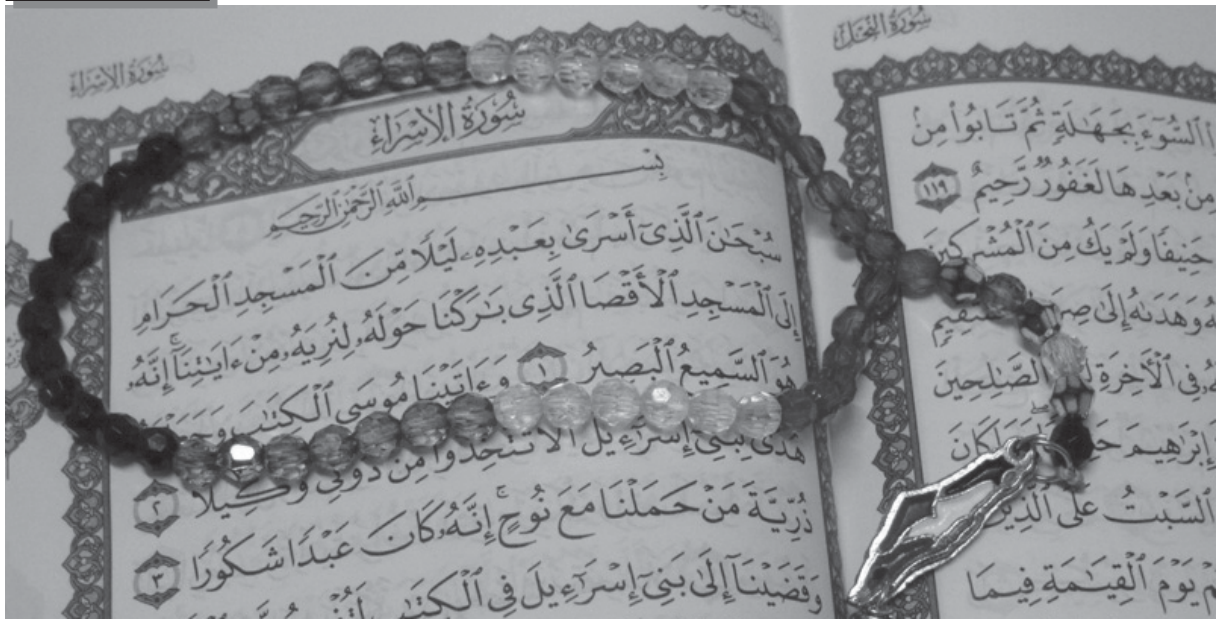 سُورَةُ النَّحْلِ
ٱلسُّوٓءَ بِجَهَٰلَةٍ ثُمَّ تَابُوا۟ مِنۢ
مِنۢ بَعْدِهَا لَغَفُورٌ رَّحِيمٌ ١١٩
حَنِيفًا وَلَمْ يَكُ مِنَ ٱلْمُشْرِكِينَ
وَهَدَىٰهُ إِلَىٰ
فِى ٱلْأَخِرَةِ ٱلصَّٰلِحِينَ
إِبْرَٰهِيمَ كَانَ
ٱلسَّبْتُ عَلَى ٱلَّذِينَ
يَوْمَ ٱلْقِيَٰمَةِ فِيمَا
سُورَةُ الإِسْرَاءِ
سُورَةُ الإِسْرَاءِ
بِسْمِ ٱللَّهِ ٱلرَّحْمَٰنِ ٱلرَّحِيمِ
سُبْحَٰنَ ٱلَّذِىٓ أَسْرَىٰ بِعَبْدِهِۦ لَيْلًا مِّنَ ٱلْمَسْجِدِ ٱلْحَرَامِ
إِلَى ٱلْمَسْجِدِ ٱلْأَقْصَا ٱلَّذِى بَٰرَكْنَا حَوْلَهُۥ لِنُرِيَهُۥ مِنْ ءَايَٰتِنَآ ۚ إِنَّهُۥ
هُوَ ٱلسَّمِيعُ ٱلْبَصِيرُ ١ وَءَاتَيْنَا مُوسَى ٱلْكِتَٰبَ
هُدًى لِّبَنِىٓ إِسْرَٰٓءِيلَ أَلَّا تَتَّخِذُوا۟ مِن دُونِى وَكِيلًا ٢
ذُرِّيَّةَ مَنْ حَمَلْنَا مَعَ نُوحٍ ۚ إِنَّهُۥ كَانَ عَبْدًا شَكُورًا ٣
وَقَضَيْنَآ إِلَىٰ بَنِىٓ إِسْرَٰٓءِيلَ فِى ٱلْكِتَٰبِ